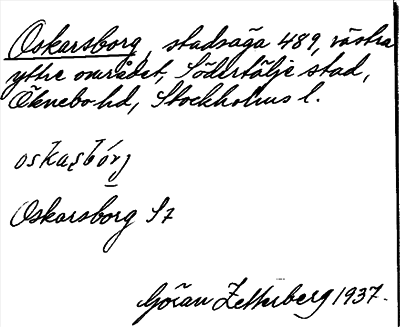 Oskarsborg, stadsäga 489, västra
yttre området, Södertälje stad,
Öknebo hd, Stockholms l.
oskasbórj
Oskarsborg S7
Göran Zetterberg 1937.